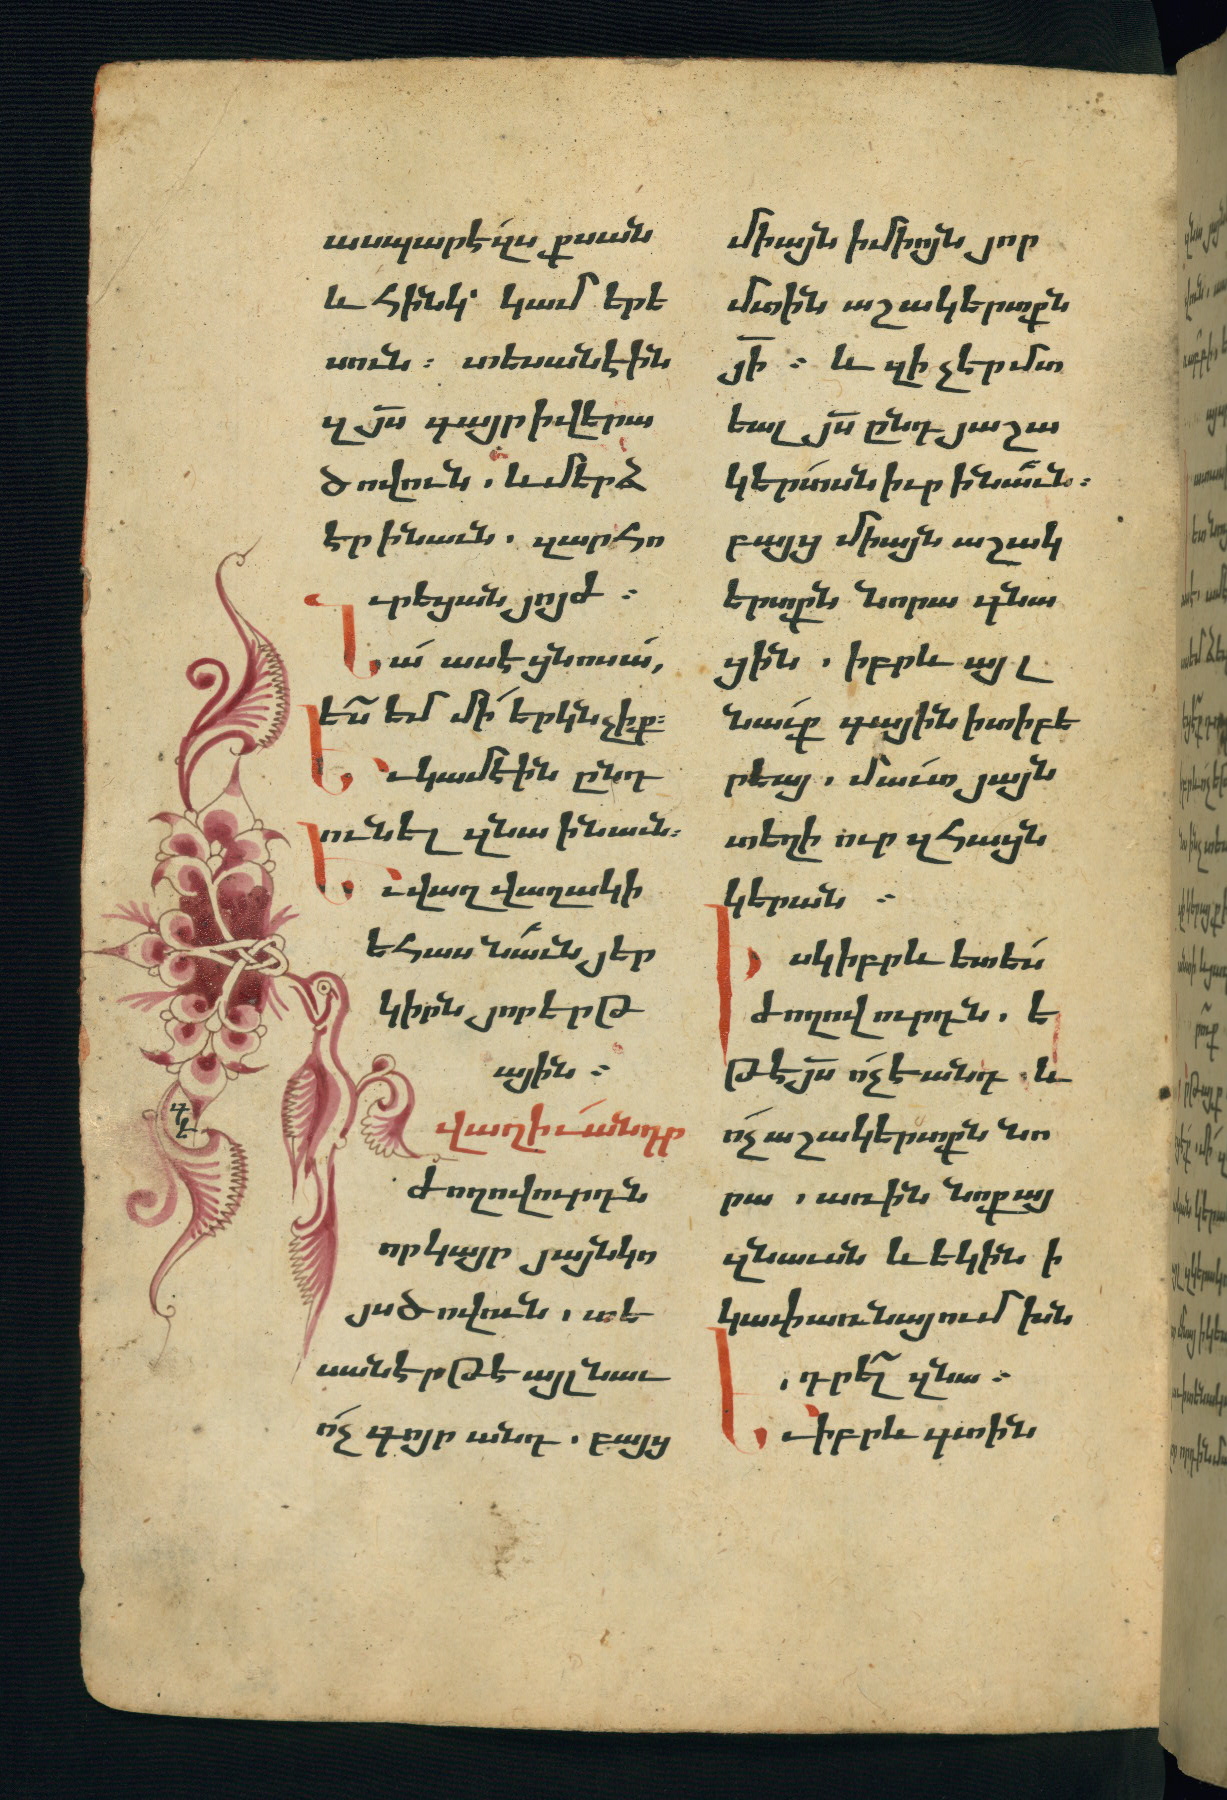 ասպարէզս քսան
և հինկ՝ կամ երե
սուն ։ տեսանէին
զյ̅ս գայր ի վերա
ծովուն . և մերձ
էր ի նաւն . զարհո
ւրեցան յոյժ ։
Նա՛ ասէ ցնոսա՛,
ես եմ մի՛ երկնչիք։
Եւ կամէին ընդ
ունել զնա ի նաւն։
Եւ վաղվաղակի
եհաս նաւն յեր
կիրն յոր երթ
ային ։
վաղիւ անդր
ժողովուրդն
որ կայր յայնկո
յս ծովուն , տե
սանէր թէ այլ նաւ
ո՛չ գոյր անդ . բայց
միայն ի միոյն յոր
մտին աշակերտքն
յ̅ի ։ և զի չեր մտ
եալ յ̅ս ընդ յաշա
կերտսն իւր ի նաւն։
բայց միայն աշակ
երտքն նորա գնա
ցին . իբրև այլ
նաւք գային ի տիբե
րեայ . մաւտ յայն
տեղի ուր զհացն
կերան ։
Իսկ իբրև ետես
ժողովուրդն . ե
թէ յ̅ս ո՛չ է անդ . և
ո՛չ աշակերտքն նո
րա , առին նոքայ
զնաւսն և եկին ի
կափառնայում խն
, դրել զնա ։
Եւ իբրև գտին